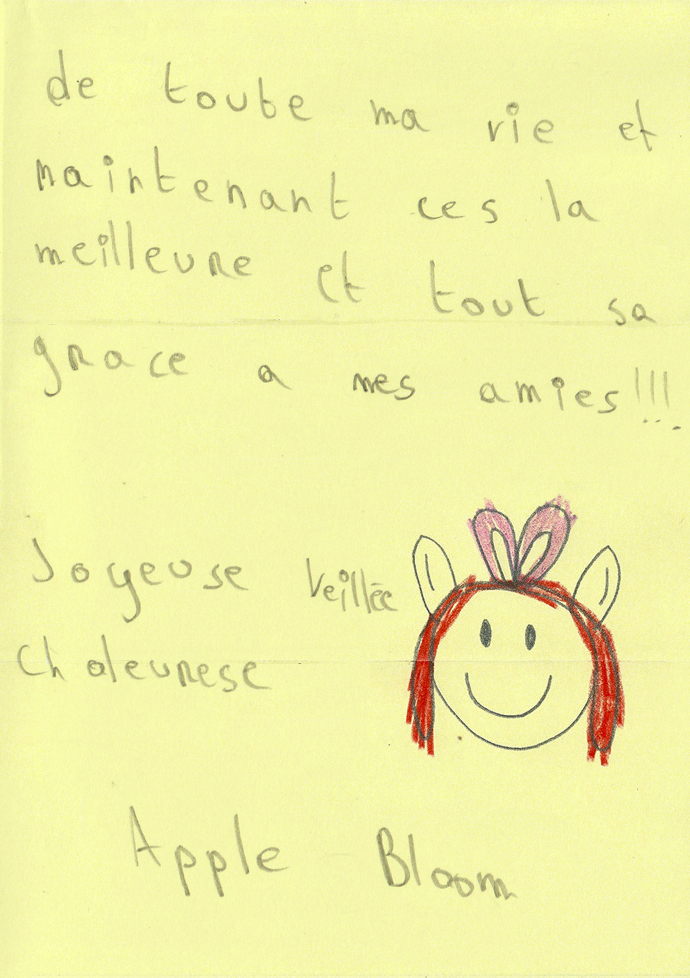 de toute ma vie et
maintenant ces la
meilleure et tout sa
grace a mes amies!!!
Joyeuse Veillée
Chaleurese
Apple Bloom